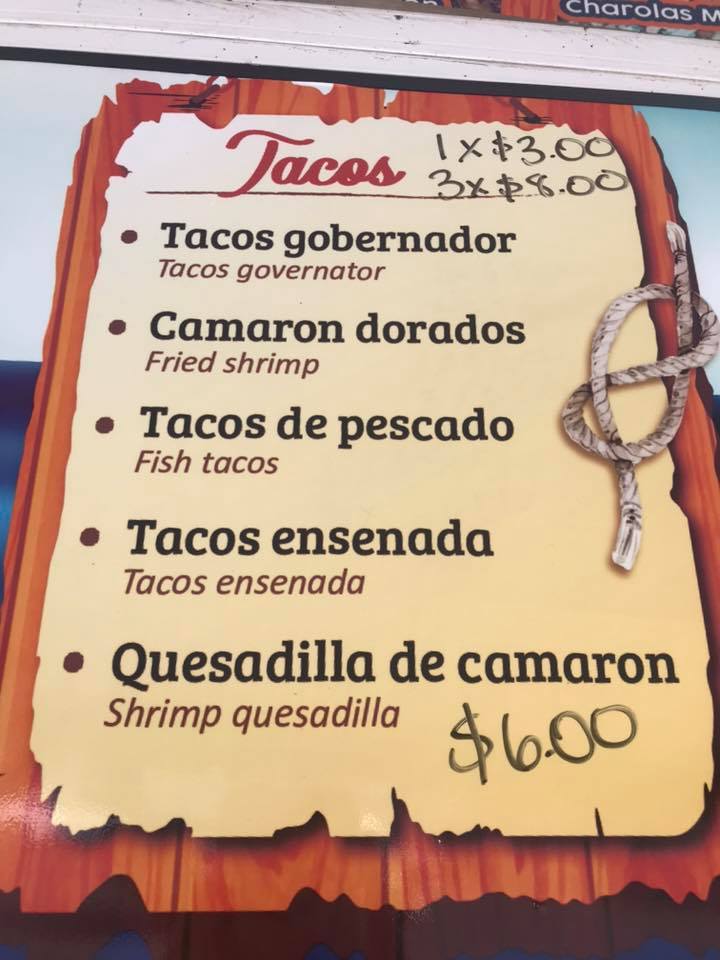 Charolas M
Tacos 1 x $3.00
3x $8.00
• Tacos gobernador
Tacos governator
• Camaron dorados
Fried shrimp
• Tacos de pescado
Fish tacos
• Tacos ensenada
Tacos ensenada
• Quesadilla de camaron
Shrimp quesadilla
$6.00